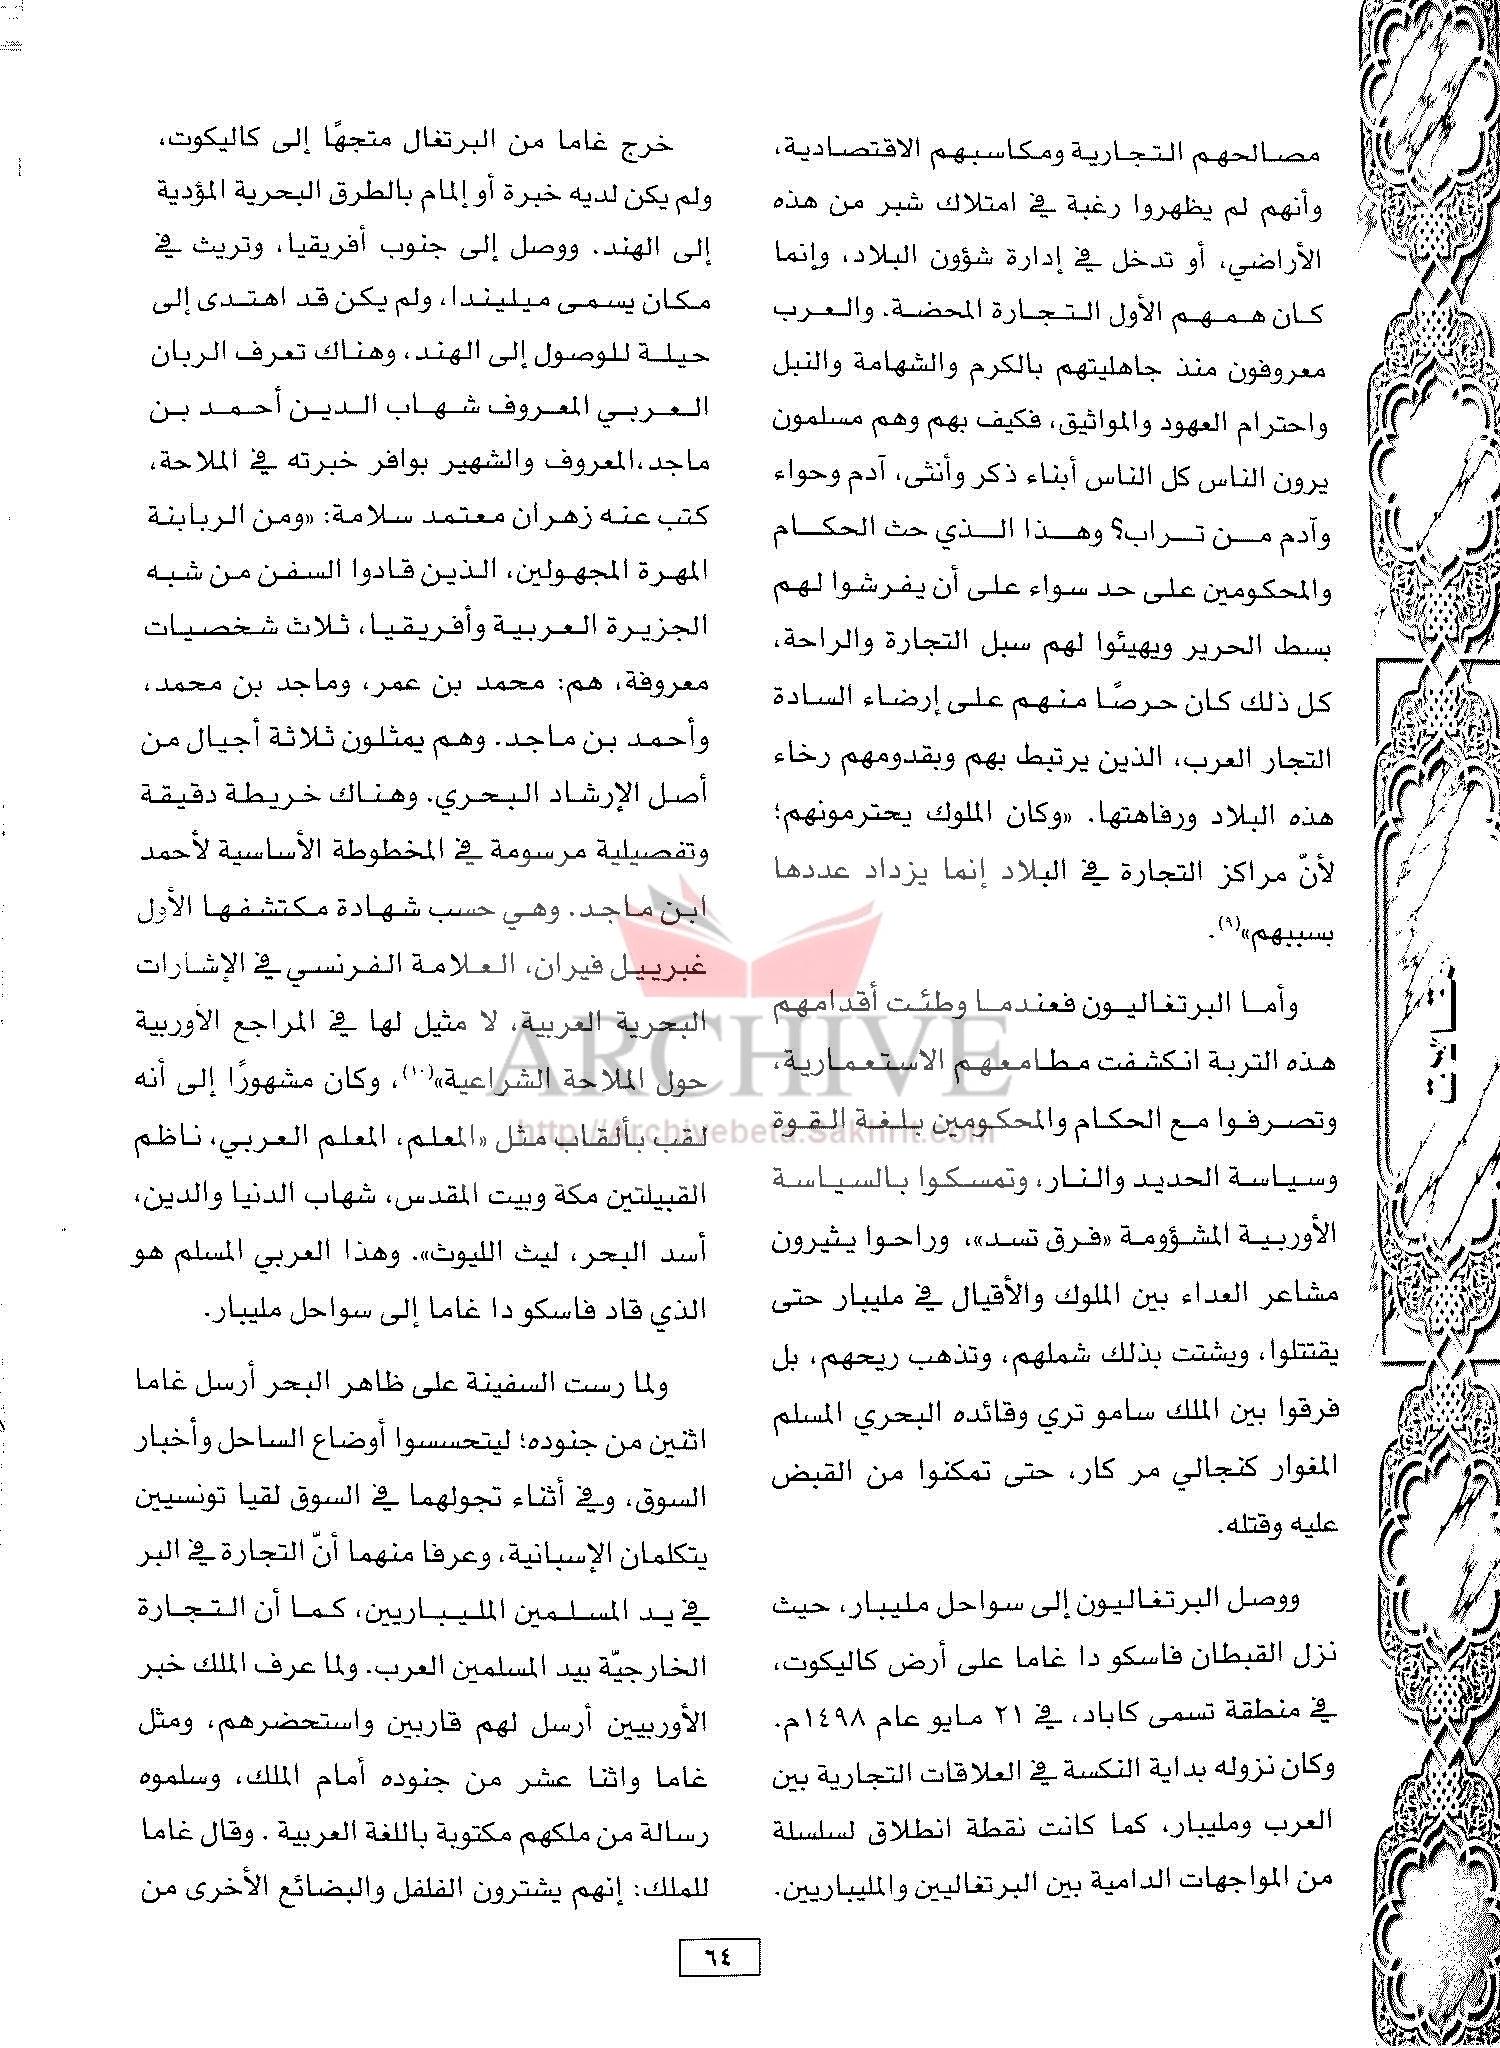 مصالحهم التجارية ومكاسبهم الاقتصادية،
وأنهم لم يظهروا رغبة في امتلاك شبر من هذه
الأراضي، أو تدخل في إدارة شؤون البلاد، وإنما
كان همهم الأول التجارة المحضة. والعرب
معروفون منذ جاهليتهم بالكرم والشهامة والنبل
واحترام العهود والمواثيق، فكيف بهم وهم مسلمون
يرون الناس كل الناس أبناء ذكر وأنثى، آدم وحواء
وآدم من تراب؟ وهذا الذي حث الحكام
والمحكومين على حد سواء على أن يفرشوا لهم
بسط الحرير ويهيئوا لهم سبل التجارة والراحة،
كل ذلك كان حرصًا منهم على إرضاء السادة
التجار العرب، الذين يرتبط بهم وبقدومهم رخاء
هذه البلاد ورفاهتها. «وكان الملوك يحترمونهم؛
لأنّ مراكز التجارة في البلاد إنما يزداد عددها
بسببهم»(٩).
وأما البرتغاليون فعندما وطئت أقدامهم
هذه التربة انكشفت مطامعهم الاستعمارية،
وتصرفوا مع الحكام والمحكومين بلغة القوة
وسياسة الحديد والنار، وتمسكوا بالسياسة
الأوربية المشؤومة «فرق تسد»، وراحوا يثيرون
مشاعر العداء بين الملوك والأقيال في مليبار حتى
يقتتلوا، ويشتت بذلك شملهم، وتذهب ريحهم، بل
فرقوا بين الملك سامو تري وقائده البحري المسلم
المغوار كنجالي مر كار، حتى تمكنوا من القبض
عليه وقتله.
ووصل البرتغاليون إلى سواحل مليبار، حيث
نزل القبطان فاسكو دا غاما على أرض كاليكوت،
في منطقة تسمى كاباد، في ٢١ مايو عام ١٤٩٨م.
وكان نزوله بداية النكسة في العلاقات التجارية بين
العرب ومليبار، كما كانت نقطة انطلاق لسلسلة
من المواجهات الدامية بين البرتغاليين والمليباريين.
خرج غاما من البرتغال متجهًا إلى كاليكوت،
ولم يكن لديه خبرة أو إلمام بالطرق البحرية المؤدية
إلى الهند. ووصل إلى جنوب أفريقيا، وتريث في
مكان يسمى ميليندا، ولم يكن قد اهتدى إلى
حيلة للوصول إلى الهند، وهناك تعرف الربان
العربي المعروف شهاب الدين أحمد بن
ماجد،المعروف والشهير بوافر خبرته في الملاحة،
كتب عنه زهران معتمد سلامة: «ومن الربابنة
المهرة المجهولين، الذين قادوا السفن من شبه
الجزيرة العربية وأفريقيا، ثلاث شخصيات
معروفة، هم: محمد بن عمر، وماجد بن محمد،
وأحمد بن ماجد. وهم يمثلون ثلاثة أجيال من
أصل الإرشاد البحري. وهناك خريطة دقيقة
وتفصيلية مرسومة في المخطوطة الأساسية لأحمد
ابن ماجد. وهي حسب شهادة مكتشفها الأول
غبرييل فيران، العلامة الفرنسي في الإشارات
البحرية العربية، لا مثيل لها في المراجع الأوربية
حول الملاحة الشراعية»(١٠)، وكان مشهورًا إلى أنه
لقب بألقاب مثل «المعلم، المعلم العربي، ناظم
القبيلتين مكة وبيت المقدس، شهاب الدنيا والدين،
أسد البحر، ليث الليوث». وهذا العربي المسلم هو
الذي قاد فاسكو دا غاما إلى سواحل مليبار.
ولما رست السفينة على ظاهر البحر أرسل غاما
اثنين من جنوده؛ ليتحسسوا أوضاع الساحل وأخبار
السوق، وفي أثناء تجولهما في السوق لقيا تونسيين
يتكلمان الإسبانية، وعرفا منهما أنّ التجارة في البر
في يد المسلمين المليباريين، كما أن التجارة
الخارجيّة بيد المسلمين العرب. ولما عرف الملك خبر
الأوربيين أرسل لهم قاربين واستحضرهم، ومثل
غاما واثنا عشر من جنوده أمام الملك، وسلموه
رسالة من ملكهم مكتوبة باللغة العربية . وقال غاما
للملك: إنهم يشترون الفلفل والبضائع الأخرى من
٦٤
ARCHIVE
http://Archivebeta.Sakhrit.com